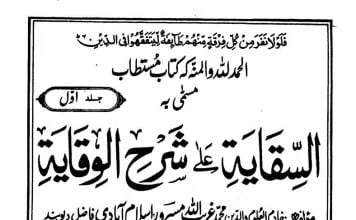 فَلَوْلَا نَفَرَ مِنْ كُلِّ فِرْقَةٍ مِّنْهُمْ طَائِفَةٌ لِّيَتَفَقَّهُوْا فِي الدِّيْنِ
الحمد للہ والمنہ کہ کتاب مستطاب
مسمٰی بہ
جلد اوّل
السِّقَايَة عَلٰی شَرْحِ الْوِقَايَة
خادم العلوم والدین محمد عبد اللہ اسلام آبادی فاضل دیوبند